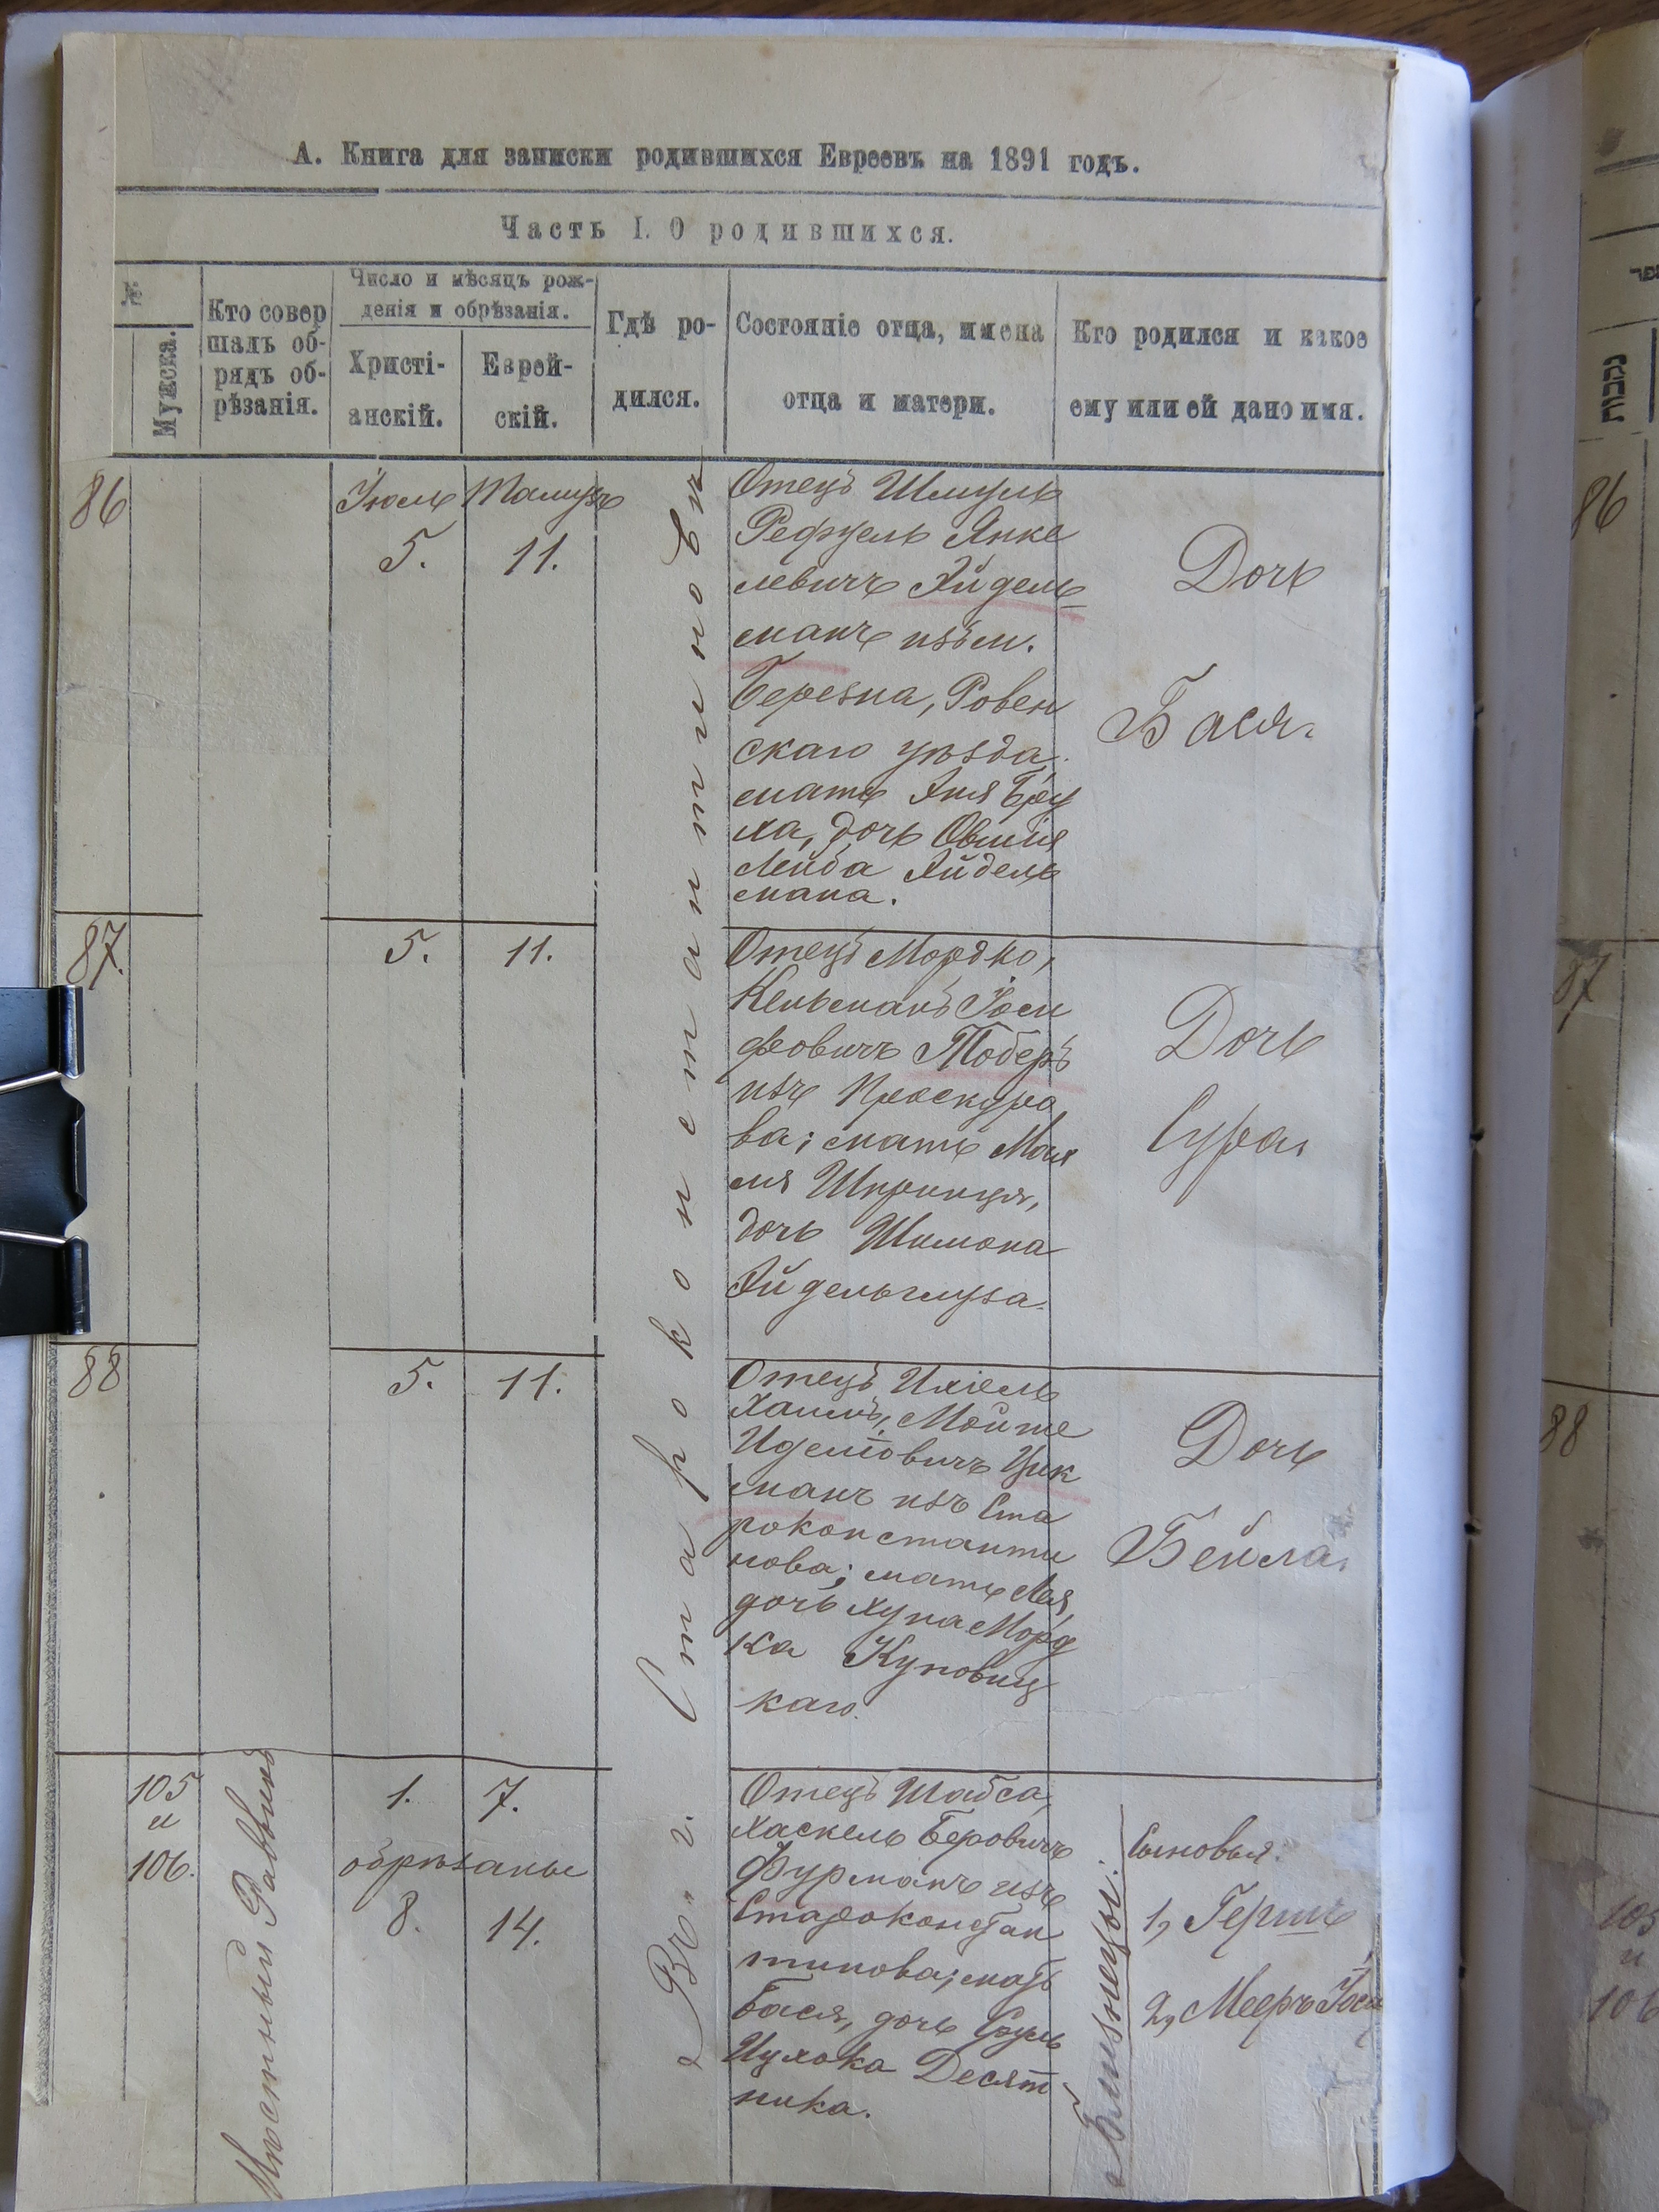 А. Книга для записки родившихся Евреевъ на 1891 годъ.
Часть I. О родившихся.
№
Мужска.
Кто совер
шалъ об-
рядъ об-
рѣзанія.
Число и мѣсяцъ рож-
денія и обрѣзанія.
Христі-
анскій.
Еврей-
скій.
Гдѣ ро-
дился.
Состояніе отца, имена
отца и матери.
Кто родился и какое
ему или ей дано имя.
Въ г. Староконстантиновѣ
86
Іюль
5.
Тамузъ
11.
Отецъ Шмуль
Рефуель Янке
левичъ Айдель
манъ изъ м.
Березна, Ровен
скаго уѣзда.
мать Хая Бру
ха, дочь Овшія
Лейба Айдель
мана.
Дочь
Бася.
87.
5.
11.
Отецъ Мордко,
Кельманъ Іоси
фовичъ Тоберъ
изъ Проскуро
ва; мать Маля
Шпринця,
дочь Шимона
Айдельглуза.
Дочь
Сура.
88
5.
11.
Отецъ Ихіель
Хаимъ, Мойше
Иделіовичъ Цук
манъ изъ Ста
роконстанти
нова; мать Лея,
дочь Хуна Морд
ка Куновиц
каго.
Дочь
Бейла.
105
и
106.
Мѣстный Раввинъ
1.
7.
обрѣзаны
8.
14.
Отецъ Шабса,
Хаскель Беровичъ
Фурманъ изъ
Староконстан
тинова; мать
Бася, дочь Сруль
Ицхока Десят
ника.
Близнецы:
Сыновья:
1, Гершъ
2, Мееръ Іось
פר
נקבות
86
87
88
105
и
106